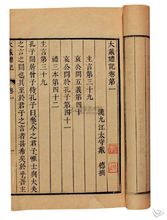 大戴禮記卷第一
漢九江太守戴 德撰
主言第三十九
哀公問五義第四十
哀公問於孔子第四十一
禮三本第四十二
主言第三十九
孔子閒居曾子侍孔子曰參今之君子惟士與大夫
之言之間也其至於君子之言者甚希矣於乎吾主